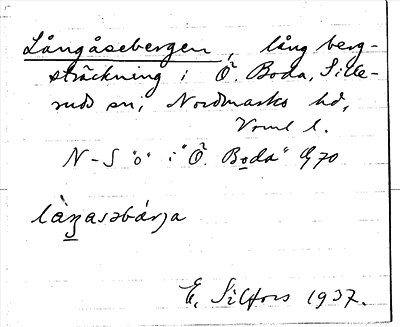 Långåsebergen, lång berg-
sträckning i Ö. Boda, Sille-
ruds sn, Nordmarks hd,
Vrml l.
N-S "ö" i "Ö. Boda" Q70
làŋasəbárja
E. Silfors 1937.